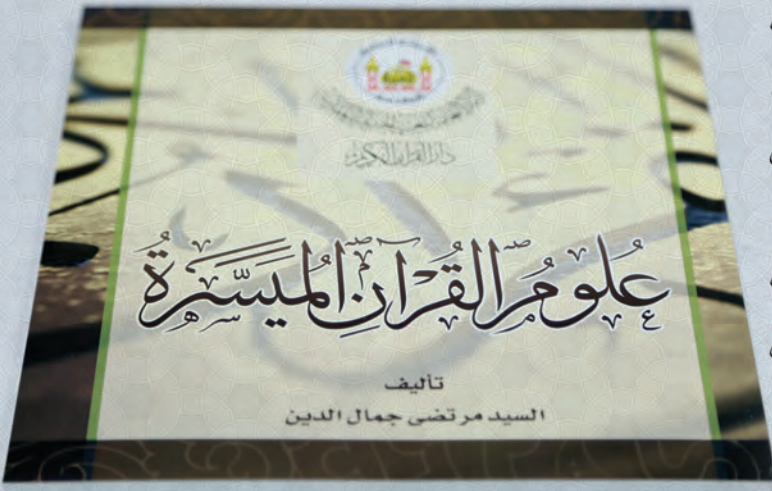 دار القرآن الكريم
علوم القرآن الميسرة
تأليف
السيد مرتضى جمال الدين